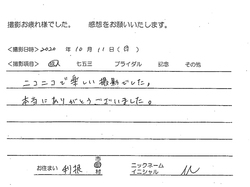 撮影お疲れ様でした。 感想をお願いいたします。
<撮影日時> 2020 年 10 月 11 日 (日)
<撮影項目> 成人 七五三 ブライダル 記念 その他
ニコニコで楽しい撮影でした。
本当にありがとうございました。
お住まい 利根 市 町 村 ニックネーム イニシャル